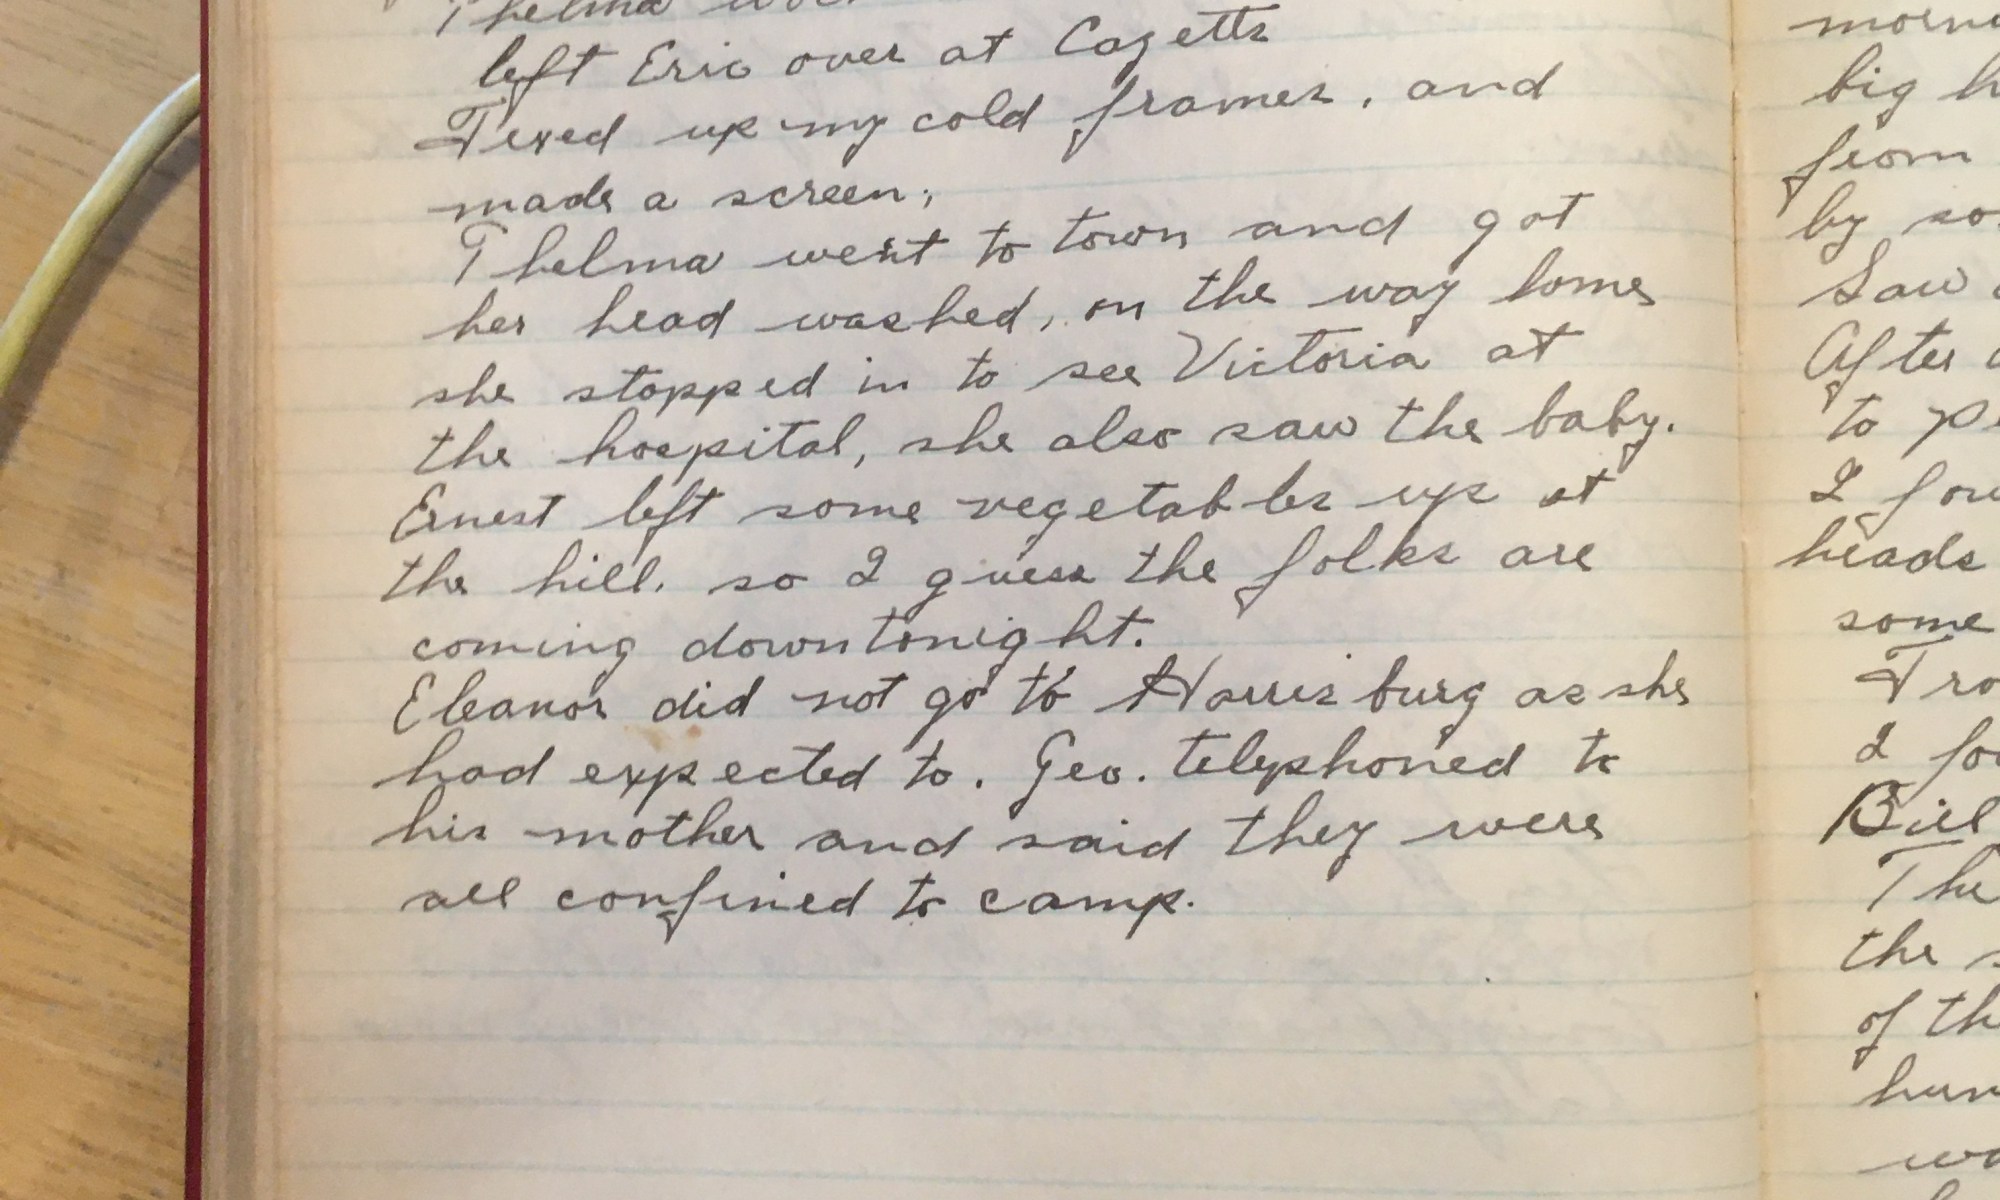 Thelma
left Eric over at Cazetts
Fixed up my cold frames, and
made a screen;
Thelma went to town and got
her head washed, on the way home
she stopped in to see Victoria at
the hospital, she also saw the baby.
Ernest left some vegetables up at
the hill. so I guess the folks are
coming down tonight.
Eleanor did not go to Harrisburg as she
had expected to. Geo. telephoned to
his mother and said they were
all confined to camp.
big
from
by
Saw
After
to
I
heads
some
I
Bill
The
the
of